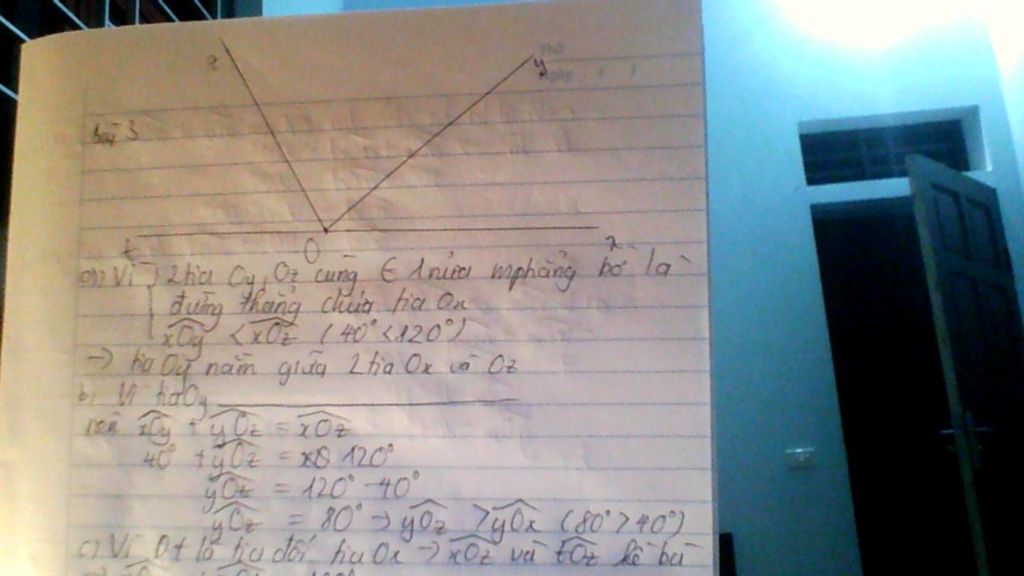 z
y
Thứ
Ngày / /
bài 3
t
O
x
a) Vì 2 tia Oy, Oz cùng ∈ 1 nửa mphẳng bờ là
đường thẳng chứa tia Ox
xOy < xOz (40° < 120°)
→ tia Oy nằm giữa 2 tia Ox và Oz
b) Vì tia Oy
nên xOy + yOz = xOz
40° + yOz = 120°
yOz = 120° - 40°
yOz = 80° → yOz > yOx (80° > 40°)
c) Vì Ot là tia đối tia Ox → xOz và tOz kề bù